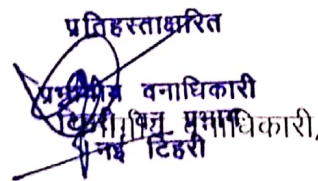 प्रतिहस्ताक्षरित
प्रभागीय वनाधिकारी
टिहरी वन प्रभाग
नई टिहरी
वनाधिकारी,